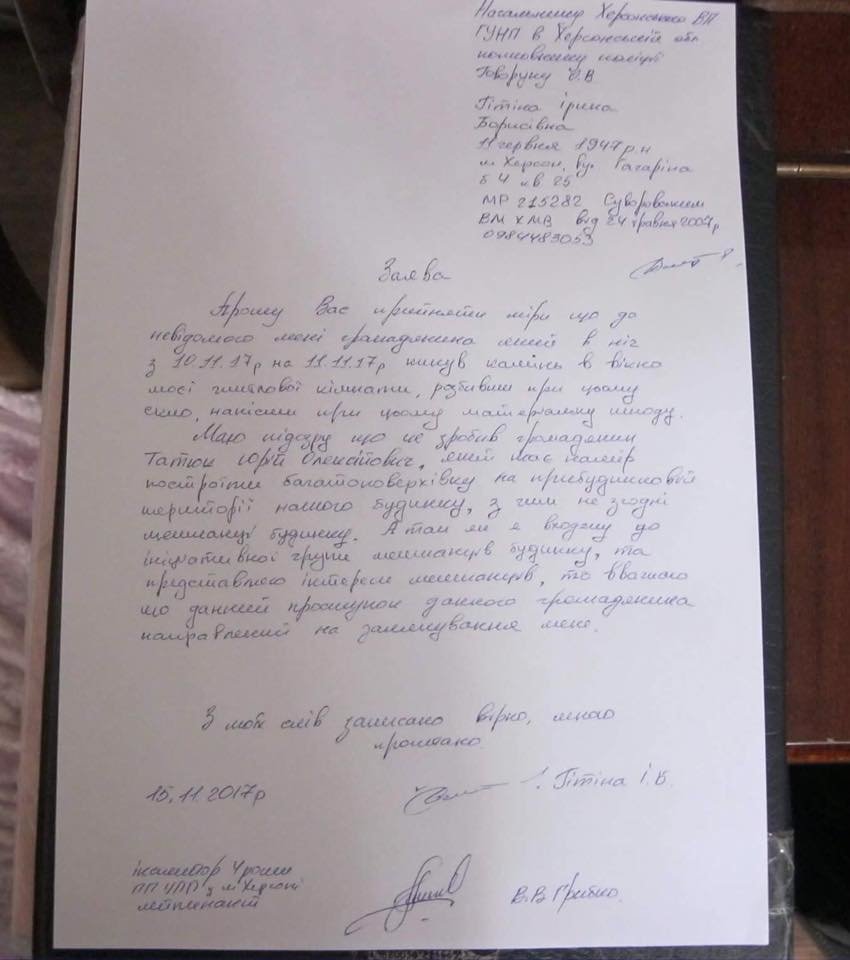 Начальнику Херсонського ВП
ГУНП в Херсонській обл
полковнику поліції
Говоруну О.В
Гітіна Ірина
Борисівна
11 червня 1947 р.н
м Херсон, вул Гагаріна
б 4 кв 25
МР 215282 Суворовським
ВМ ХМВ від 24 травня 2007р
0984483053
Заява
Прошу Вас прийняти міри що до
невідомого мені громадянина який в ніч
з 10.11.17р на 11.11.17р кинув камінь в вікно
моєї житлової кімнати, розбивши при цьому
скло, нанісши при цьому матеріальну шкоду.
Маю підозру що це зробив громадянин
Татюк Юрій, який має намір
построїти багатоповерхівку на прибудинковій
території нашого будинку, з чим не згодні
мешканці будинку. А так як я входжу до
ініціативної групи мешканців будинку, та
представляю інтереси мешканців, то вважаю
що данний проступок даного громадянина
направлений на залякування мене.
З моїх слів записано вірно, мною
прочитано.
15.11.2017р
Гітіна І.Б.
інспектор 4 роти
ПП УПП у м Херсоні
лейтенант
В.В Грибко.